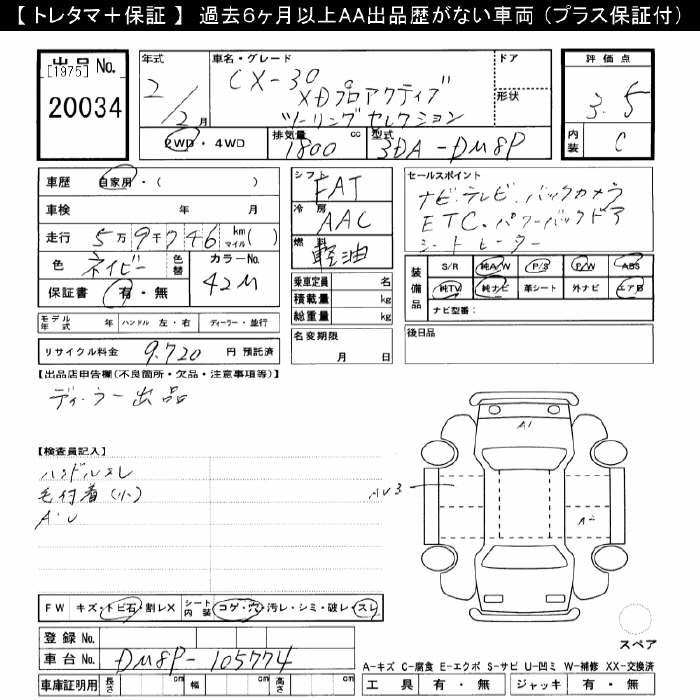 【 トレタマ＋保証 】 過去6ヶ月以上AA出品歴がない車両 (プラス保証付)
出品 No.
[1975]
20034
年式
2/2月
車名・グレード
CX-30
XDプロアクティブ
ツーリングセレクション
ドア
形状
評価点
3.5
内装
C
2WD・4WD
排気量
1800
cc
型式
3DA-DM8P
車歴
自家用・( )
車検 年 月
走行
5万9千746
km マイル ( )
色
ネイビー
色替
カラーNo.
42M
保証書
有・無
シフト
FAT
冷房
AAC
燃料
軽油
乗車定員 名
積載量 kg
総重量 kg
セールスポイント
ナビ.テレビ.バックカメラ
ETC.パワーバックドア
シートヒーター
装備品
S/R 純A/W P/S P/W ABS
純TV 純ナビ 革シート 外ナビ エアB
ナビ型番：
モデル年式 年 ハンドル 左・右 ディーラー・並行
リサイクル料金 9.720 円 預託済
名変期限
月 日
後日品
【出品店申告欄(不良箇所・欠品・注意事項等)】
ディーラー出品
【検査員記入】
ハンドルスレ
毛付着(小)
A・U
A1
AU3
A2
FW キズ・トビ石・割レX シート内装 コゲ・穴・汚レ・シミ・破レ・スレ
スペア
登録 No.
車台 No. DM8P-105774
A-キズ C-腐食 E-エクボ S-サビ U-凹ミ W-補修 XX-交換済
車庫証明用 長さ cm 幅 cm 高さ cm
工具 有・無 ジャッキ 有・無